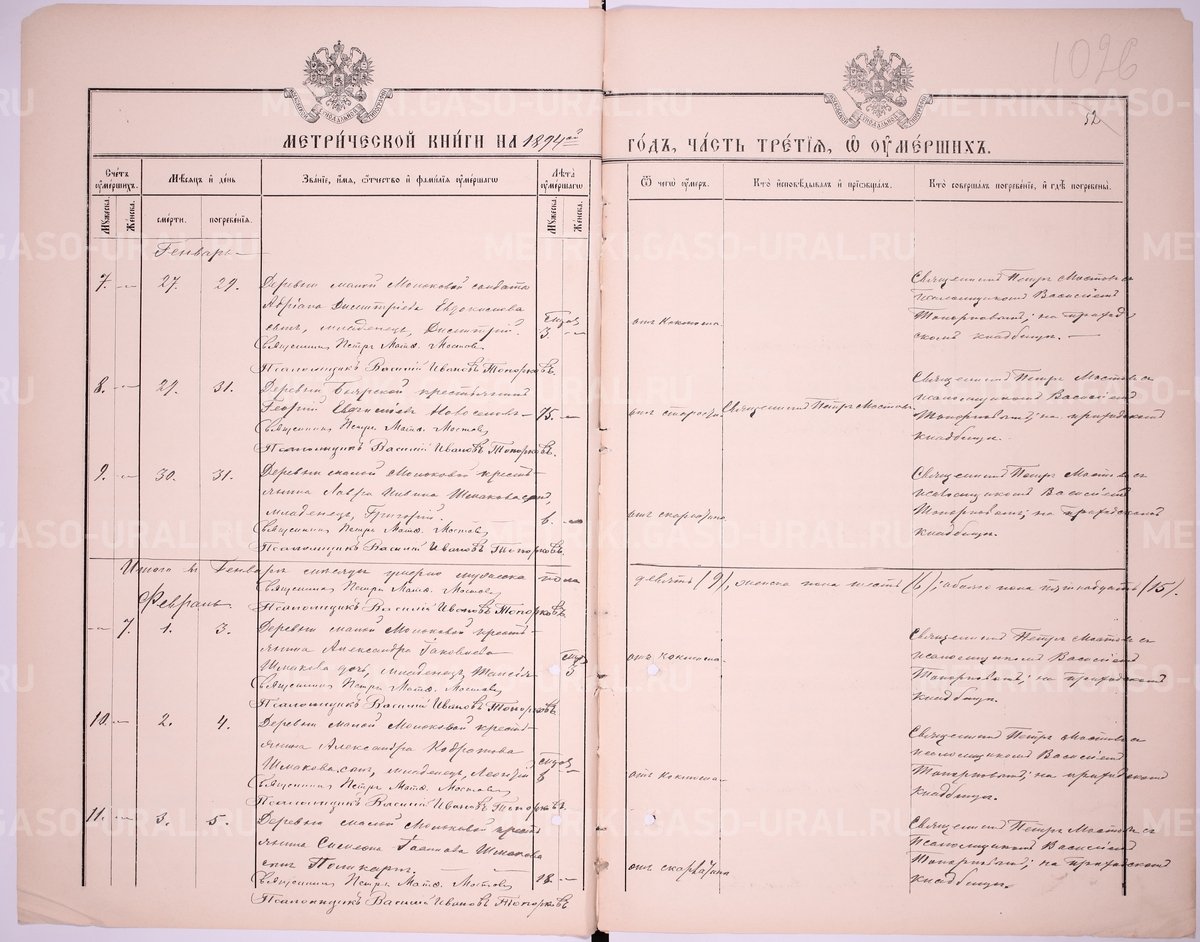 1026
52
МЕТРИ́ЧЕСКОЙ КНИ́ГИ НА 1894ый
ГО́ДЪ, ЧА́СТЬ ТРЕ́ТІЯ, Ѡ ОУМЕ́РШИХЪ.
Сче́тъ оуме́ршихъ.
Мѣ́сяцъ и де́нь
Зва́ніе, и́мя, ѻ́тчество и фами́лія оуме́ршаго
Лѣ́та оуме́ршаго
Ѿ чегѡ̀ оу́меръ.
Кто̀ исповѣ́дывалъ и приѻбща́лъ.
Кто̀ соверша́лъ погребе́ніе, и гдѣ̀ погребены̀.
Мꙋ́жеска. Же́нска.
сме́рти. погребе́нія.
Мꙋ́жеска. Же́нска.
Генварь
7. 27. 29. Деревни малой Моиоковой солдата
Адріана Димитріева Евдокимова
сынъ, младенецъ, Димитрій. 3.
Священникъ Петръ Матѳ. Мостовъ
Псаломщикъ Василій Ивановъ Топорковъ.
отъ коклюша.
Священникъ Петръ Мостовъ съ
псаломщикомъ Василіемъ
Топорковымъ; на приход
скомъ кладбищѣ.
8. 29. 31. Деревни Боярской крестьянинъ
Георгій 75.
Священникъ Петръ Матѳ. Мостовъ
Псаломщикъ Василій Ивановъ Топорковъ.
отъ старости Священникъ Петръ Мостовъ.
Священникъ Петръ Мостовъ съ
псаломщикомъ Василіемъ
Топорковымъ; на приходскомъ
кладбищѣ.
9. 30. 31. Деревни малой Моиоковой кресть-
янина Лавра Шмакова сынъ,
младенецъ, Григорій. 6.
Священникъ Петръ Матѳ. Мостовъ
Псаломщикъ Василій Ивановъ Топорковъ.
отъ скарлатина
Священникъ Петръ Мостовъ съ
псаломщикомъ Василіемъ
Топорковымъ; на приходскомъ
кладбищѣ.
Итого въ Генварѣ мѣсяцѣ умерло мужеска пола
девять (9), женска пола шесть (6); обоего пола пятнадцать (15).
Священникъ Петръ Матѳ. Мостовъ
Псаломщикъ Василій Ивановъ Топорковъ
Февраль
7. 1. 3. Деревни малой Моиоковой кресть-
янина Александра Іаковлева
Шмакова дочь, младенецъ, Таисія 3
Священникъ Петръ Матѳ. Мостовъ
Псаломщикъ Василій Ивановъ Топорковъ.
отъ коклюша.
Священникъ Петръ Мостовъ съ
псаломщикомъ Василіемъ
Топорковымъ; на приходскомъ
кладбищѣ.
10. 2. 4. Деревни малой Моиоковой кресть-
янина Александра Кодратова
Шмакова сынъ, младенецъ, 8
Священникъ Петръ Матѳ. Мостовъ
Псаломщикъ Василій Ивановъ Топорковъ.
отъ коклюша.
Священникъ Петръ Мостовъ съ
псаломщикомъ Василіемъ
Топорковымъ; на приходскомъ
кладбищѣ.
11. 3. 5. Деревни малой Моиоковой кресть
янина Симеона Шмакова
сынъ Поликарпъ. 18.
Священникъ Петръ Матѳ. Мостовъ
Псаломщикъ Василій Ивановъ Топорковъ
отъ скарлатина
Священникъ Петръ Мостовъ съ
Псаломщикомъ Василіемъ
Топорковымъ; на приходскомъ
кладбищѣ.
METRIKI.GASO-URAL.RU